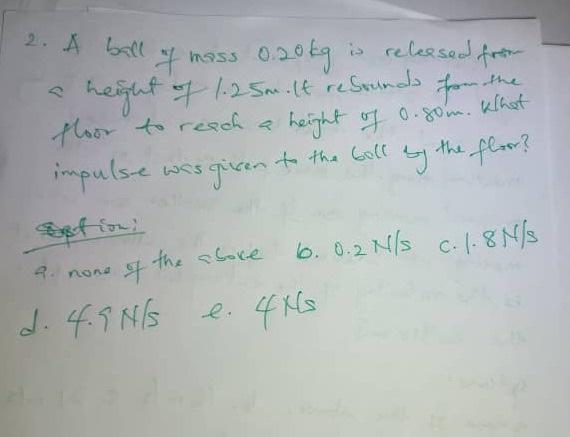 2. A ball of mass 0.20kg is released from
a height of 1.25m. It rebounds from the
floor to reach a height of 0.80m. What
impulse was given to the ball by the floor?
Option:
a. none of the above b. 0.2 N/s c. 1.8 N/s
d. 4.9 N/s e. 4 Ns